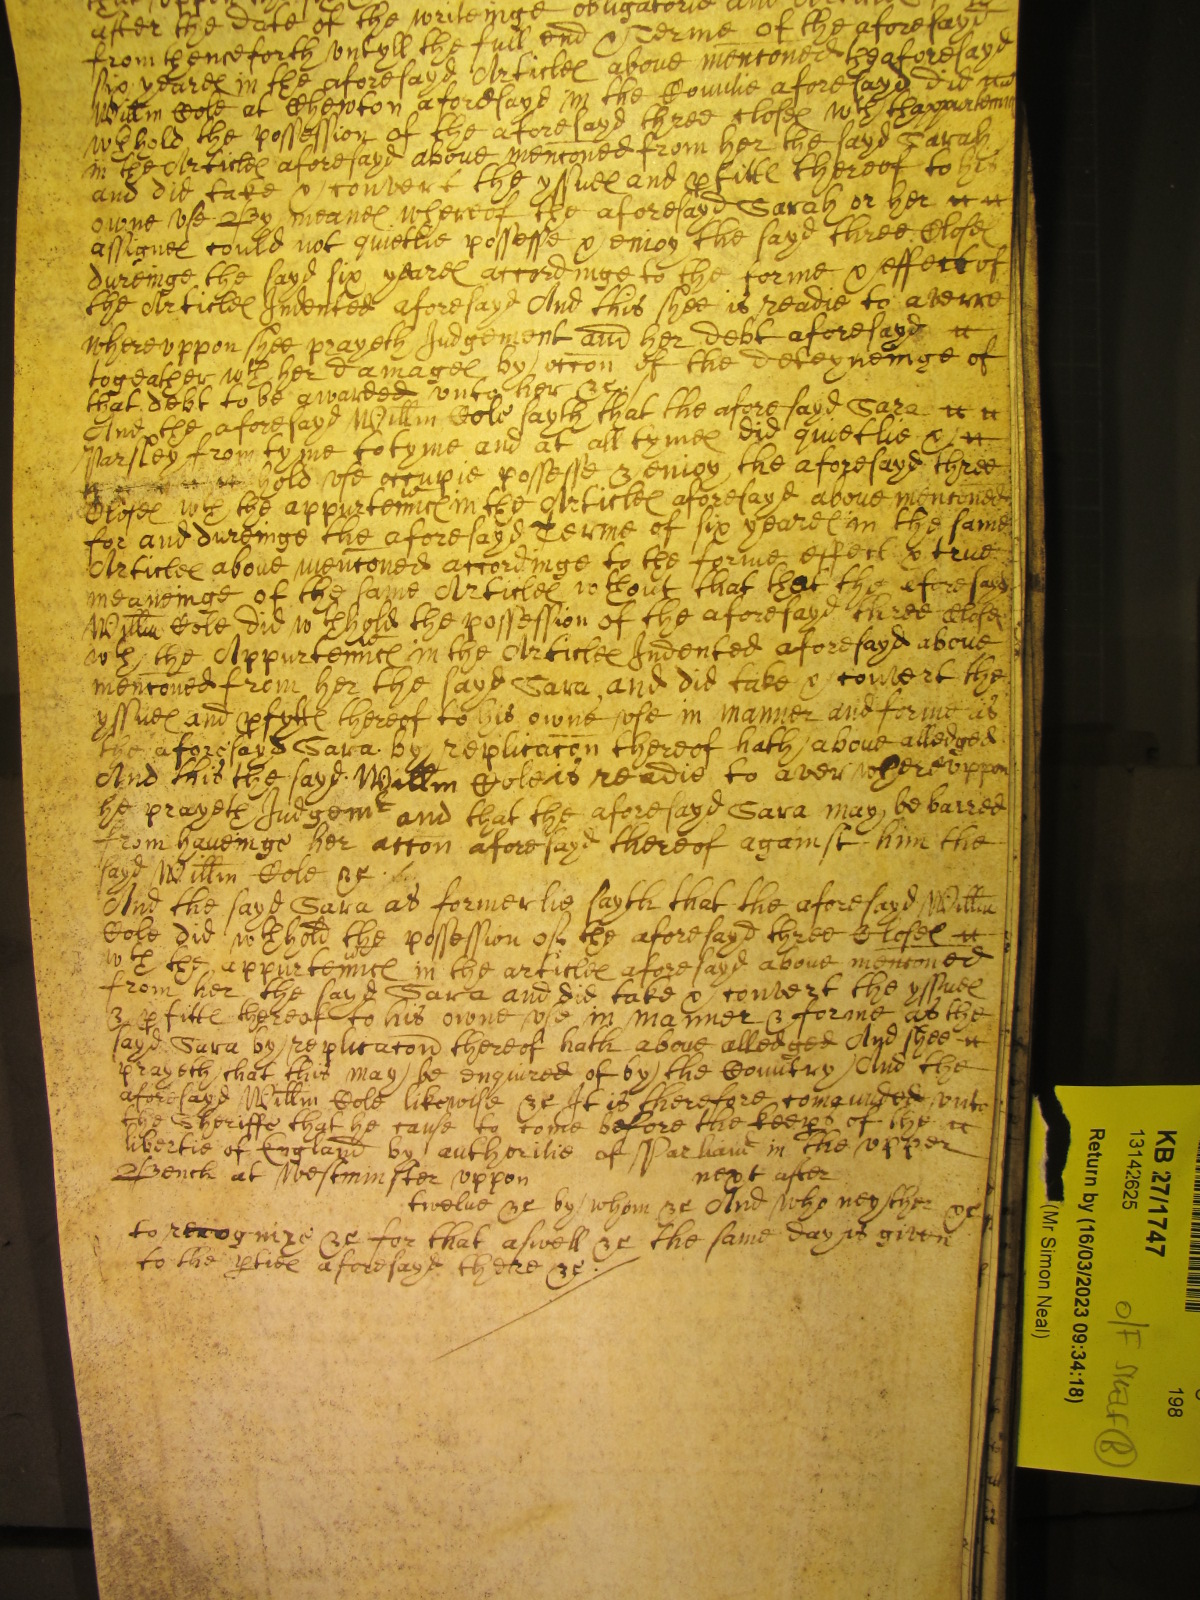 after the date of the writeinge obligatorie and Articles
from thenceforth untyll the full end & Terme of the aforesayd
six yeares in the aforesayd Articles above mentoned the aforesayd
Willm Cole at Chewton aforesayd in the Countie aforesayd did
wthhold the possession of the aforesayd three closes wth thappurtennces
in the Articles aforesayd above mentoned from her the sayd Sarah
and did take & convert the yssues and pfitts thereof to his
owne use By meanes whereof the aforesayd Sarah or her
assignes could not quietlie possesse & enioy the sayd three Closes
dureinge the sayd six yeares accordinge to the forme & effect of
the Articles Indented aforesayd And this shee is readie to averre
whereuppon shee prayeth Judgement and her debt aforesayd
togeather wth her damages by occon of the deteyneinge of
that debt to be awarded unto her &c
And the aforesayd Willm Cole sayth that the aforesayd Sara
Parsley from tyme to tyme and at all tymes did quietlie &
hold use occupie possesse & enioy the aforesayd three
Closes wth the appurtennces in the Articles aforesayd above mentoned
for and dureinge the aforesayd Terme of six yeares in the same
Articles above mentoned accordinge to the forme effect & true
meaneinge of the same Articles wthout that that the aforesayd
Willm Cole did wthhold the possession of the aforesayd three Closes
wth the Appurtennces in the Articles Indented aforesayd above
mentoned from her the sayd Sara and did take & convert the
yssues and pfytts thereof to his owne use in manner and forme as
the aforesayd Sara by replicacon thereof hath above alledged
And this the sayd Willm Cole is readie to aver whereuppon
he prayeth Judgemt and that the aforesayd Sara may be barred
from haueinge her accon aforesayd thereof against him the
sayd Willm Cole &c
And the sayd Sara as formerlie sayth that the aforesayd Willm
Cole did wthhold the possession of the aforesayd three Closes
wth the appurtennces in the articles aforesayd above mentoned
from her the sayd Sara and did take & convert the yssues
& pfitts thereof to his owne use in manner & forme as the
sayd Sara by replicacon thereof hath above alledged And shee
prayeth that this may be enquired of by the Country And the
aforesayd Willm Cole likewise &c It is therefore comaunded unto
the Sheriffe that he cause to come before the keeps of the
libertie of England by authoritie of Parliamt in the upper
Bench at Westminster uppon next after
twelve &c by whom &c And who neyther &c
to recognize &c for that aswell &c the same day is given
to the pties aforesayd there &c
KB 27/1747
13142625
198
Return by (16/03/2023 09:34:18)
(Mr Simon Neal)